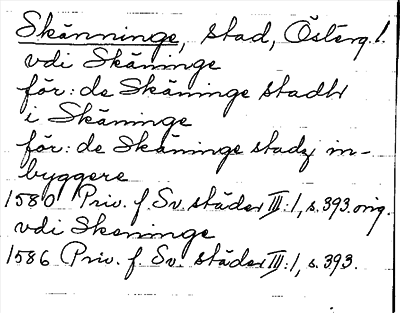 Skänninge, stad, Österg.l.
vdi Skäninge
för: de Skäninge stadh
i Skäninge
för: de Skäninge stadz in-
byggere
1580 Priv. f. Sv. städer III:1, s. 393. orig.
vdi Skeninge
1586 Priv. f. Sv. städer III:1, s. 393.